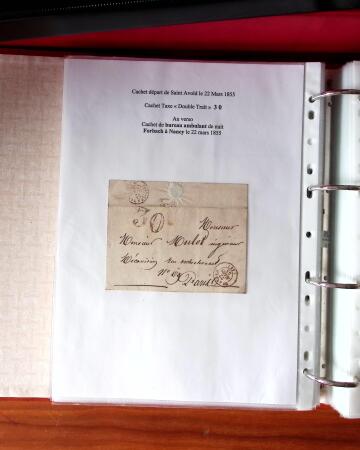 Cachet départ de Saint Avold le 22 Mars 1853
Cachet Taxe « Double Trait » 30
Au verso
Cachet de bureau ambulant de nuit
Forbach à Nancy le 22 mars 1853
30
Monsieur
Monsieur Mulot ingénieur
Mécanicien rue rochechouart
N° 69 Paris